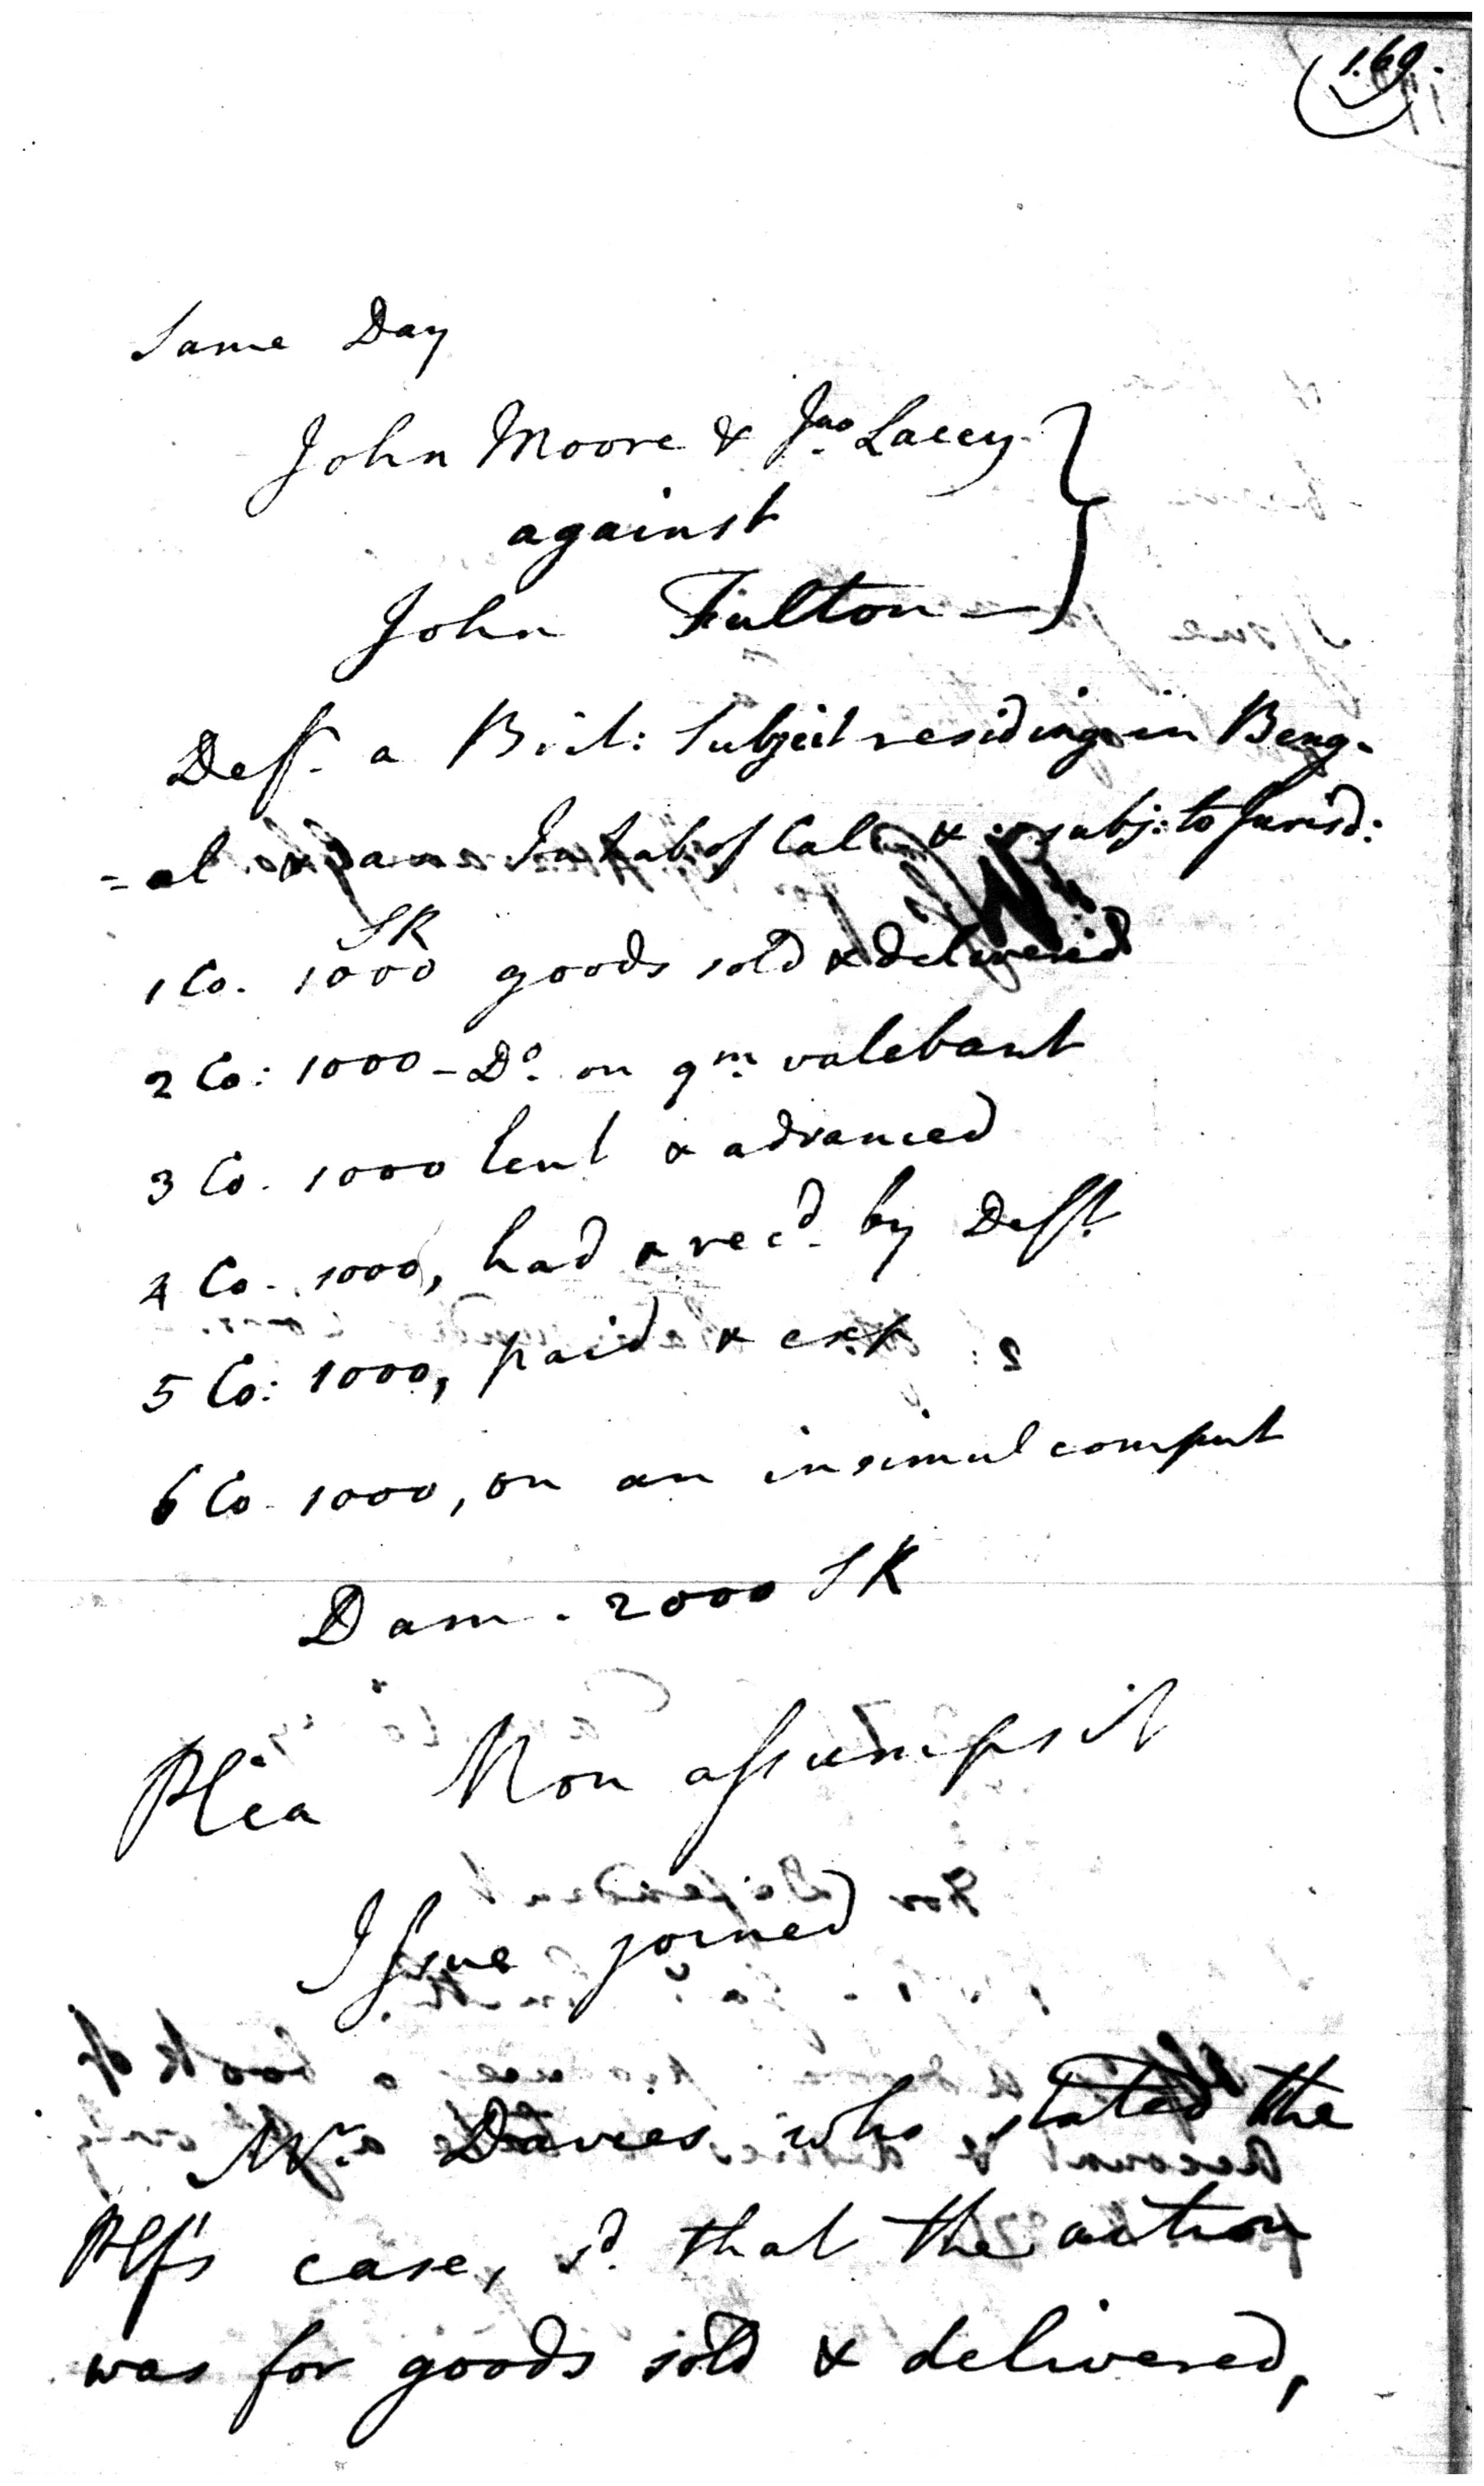 169.
Same Day
John Moore & Jno. Lacey
against
John Fulton
Def. a Brit: Subject residing in Beng-
-al & an Inhab of Cal & subj: to Jurisd:
SR
1 Co. 1000 goods sold & delivered
2 Co: 1000 - Do. on qm. valebant
3 Co. 1000 lent & advanced
4 Co. 1000, had & recd. by Deft
5 Co: 1000, paid & exp
6 Co. 1000, on an insimul comput
Dam. 2000 SR
Plea Non assumpsit
Issue joined
Mr. Davies who stated the
Plf's case, sd. that the action
was for goods sold & delivered,